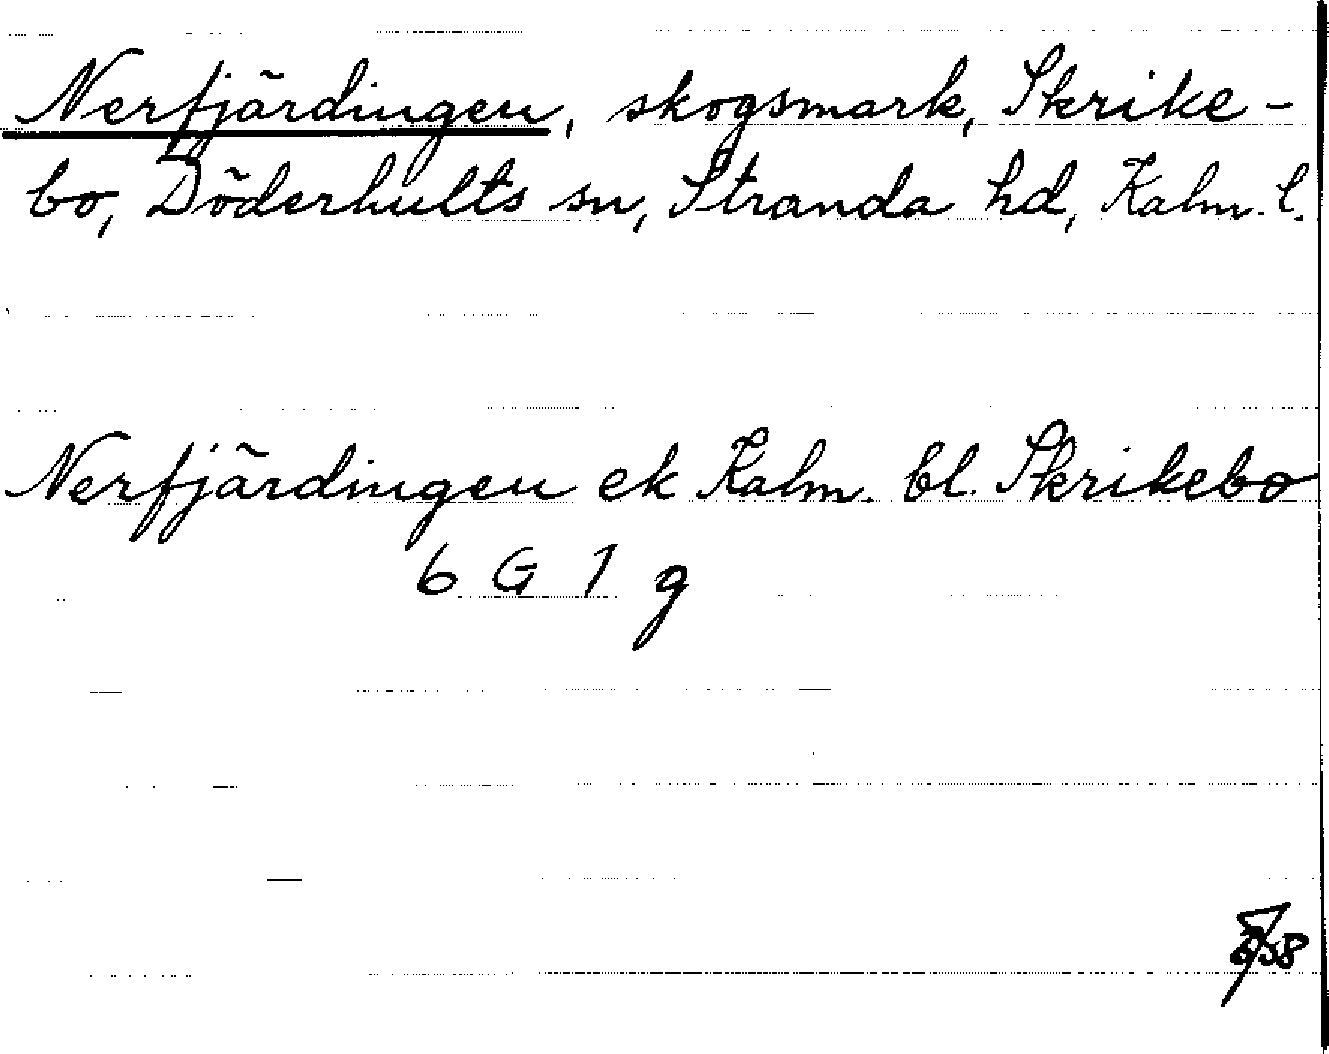 Nerfjärdingen, skogsmark, Skrike-
bo, Döderhults sn, Stranda hd, Kalm. l.
Nerfjärdingen ek Kalm. bl. Skrikebo
6 G 1 g